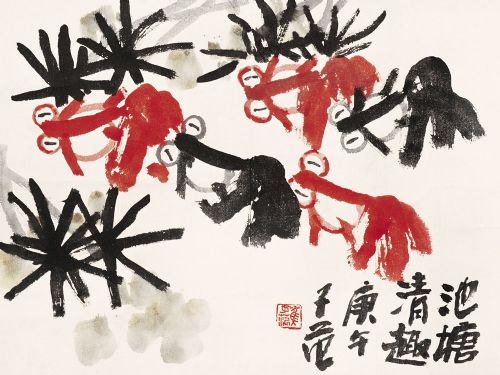 池塘
清趣
庚午
子范